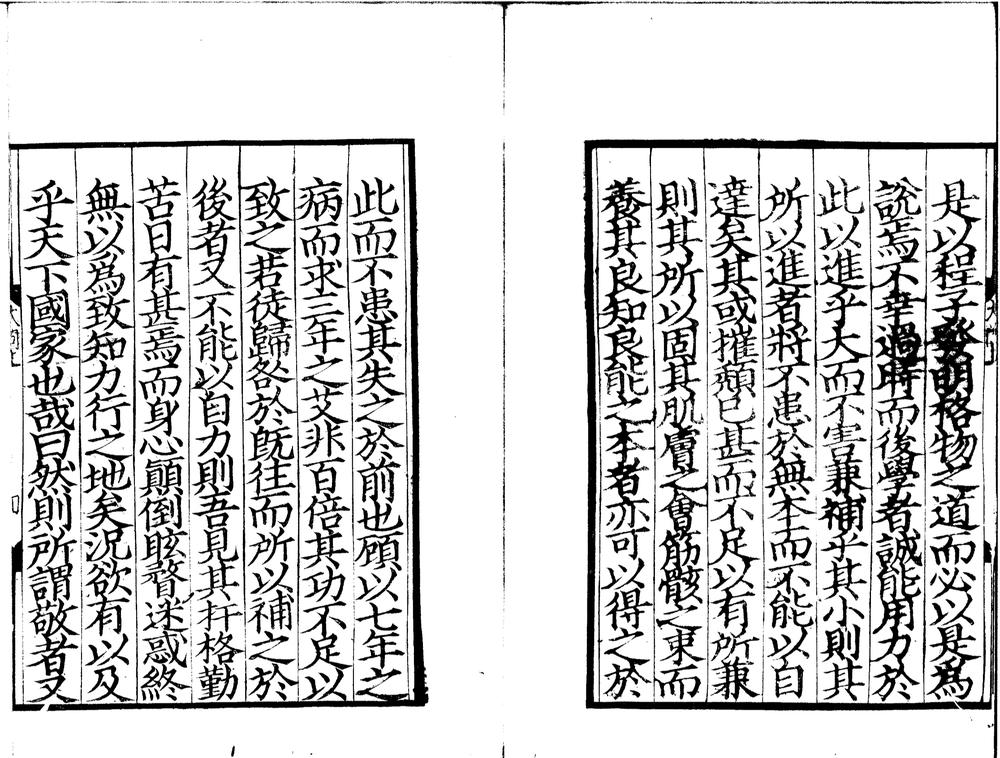 是以程子發明格物之道而必以是爲
説焉不幸過時而後學者誠能用力於
此以進乎大而不害兼補乎其小則其
所以進者將不患於無本而不能以自
達矣其或摧頽已甚而不足以有所兼
則其所以固其肌膚之會筋骸之束而
養其良知良能之本者亦可以得之於
此而不患其失之於前也顧以七年之
病而求三年之艾非百倍其功不足以
致之若徒歸咎於既往而所以補之於
後者又不能以自力則吾見其扞格勤
苦日有甚焉而身心顛倒眩瞀迷惑終
無以爲致知力行之地矣況欲有以及
乎天下國家也哉曰然則所謂敬者又